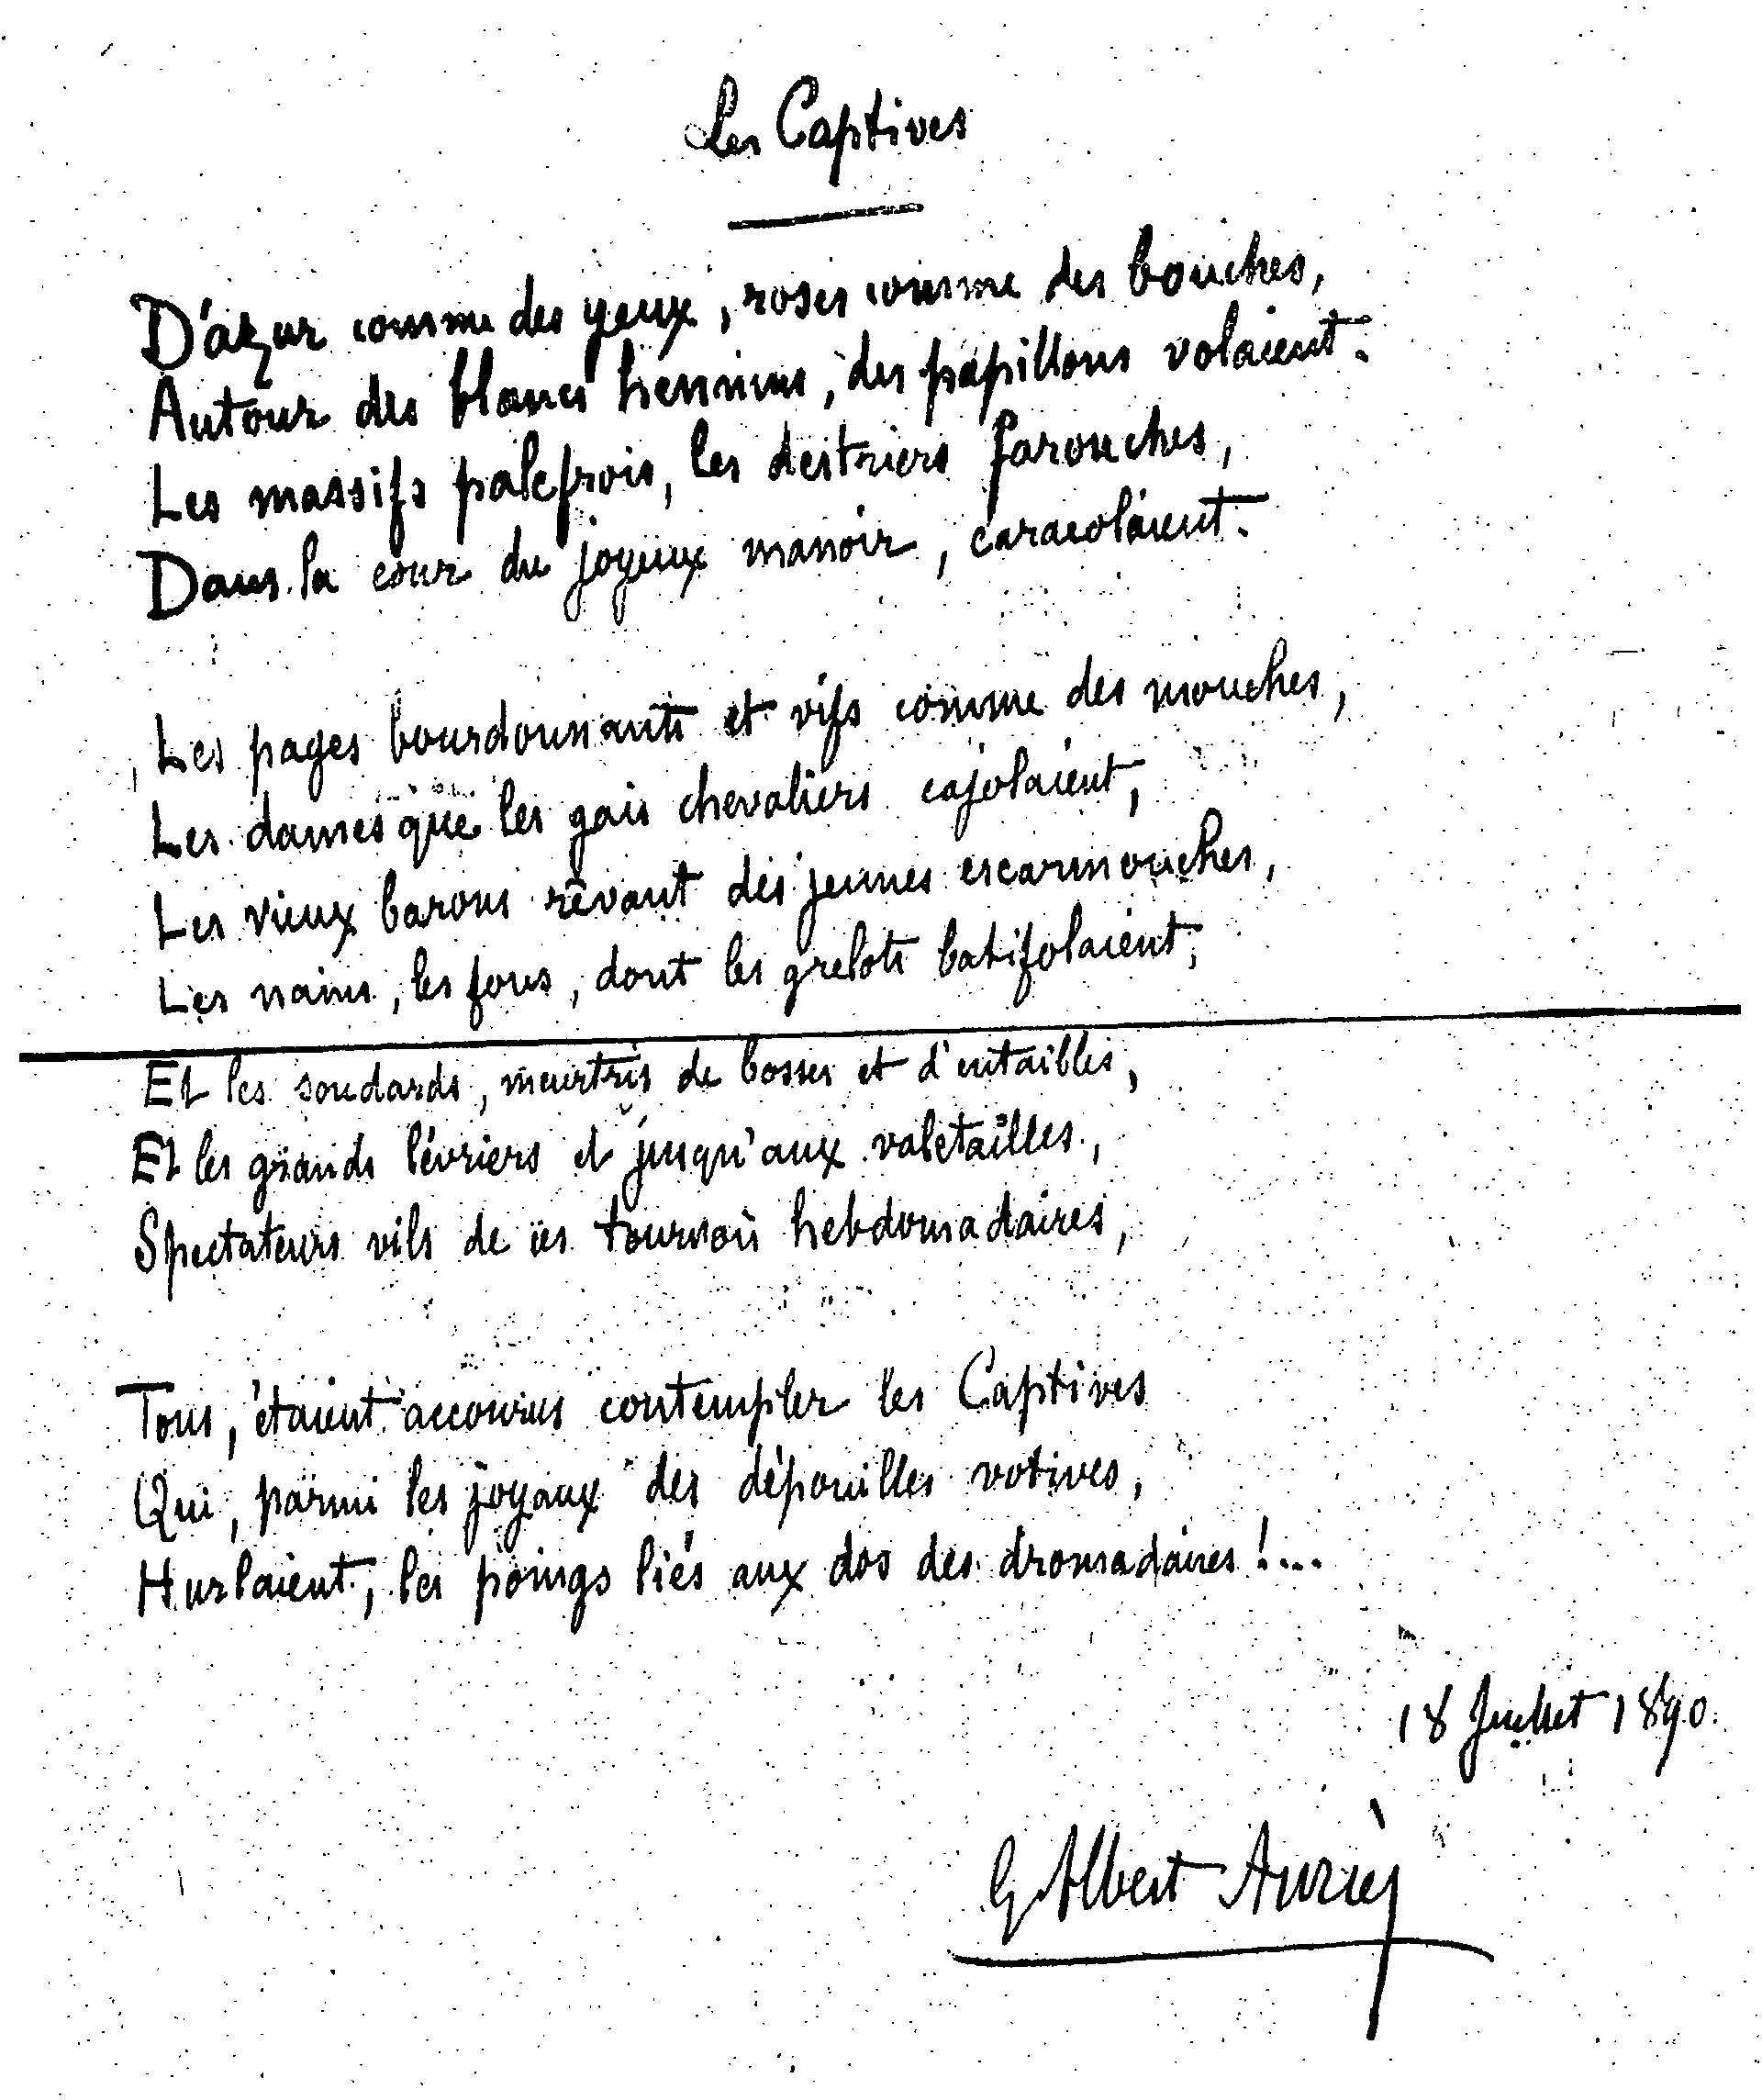 Les Captives
D'azur comme des yeux, roses comme des bouches,
Autour des blancs hennins, des papillons volaient.
Les massifs palefrois, les destriers farouches,
Dans la cour du joyeux manoir, caracolaient.
Les pages bourdonnants et vifs comme des mouches,
Les dames que les gais chevaliers cajolaient,
Les vieux barons rêvant des jeunes escarmouches,
Les nains, les fous, dont les grelots batifolaient,
Et les soudards, meurtris de bosses et d'entailles,
Et les grands lévriers et jusqu'aux valetailles,
Spectateurs vils de ces tournois hebdomadaires,
Tous, étaient accourus contempler les Captives
Qui, parmi les joyaux des dépouilles votives,
Hurlaient, les poings liés aux dos des dromadaires !...
18 Juillet 1890.
G Albert Aurier